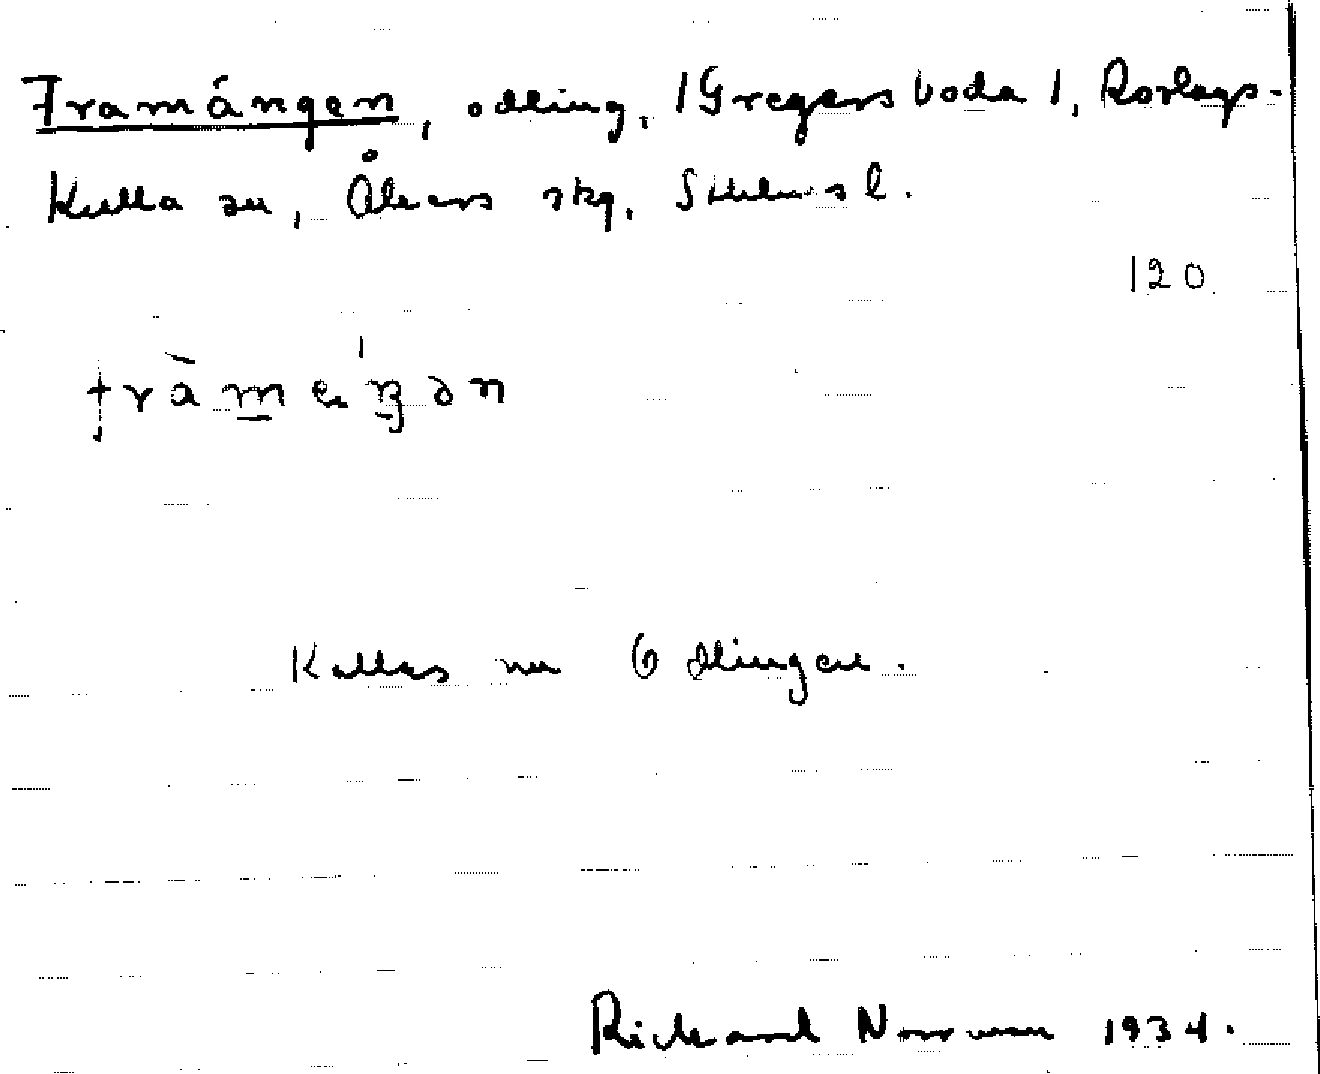 Framängen, odling, 1 Gregersboda 1, Roslags-
Kulla sn, Åkers skg, Sthlms l.
120
fràmeŋən
Kallas nu Odlingen.
Rickard Norrman 1934.